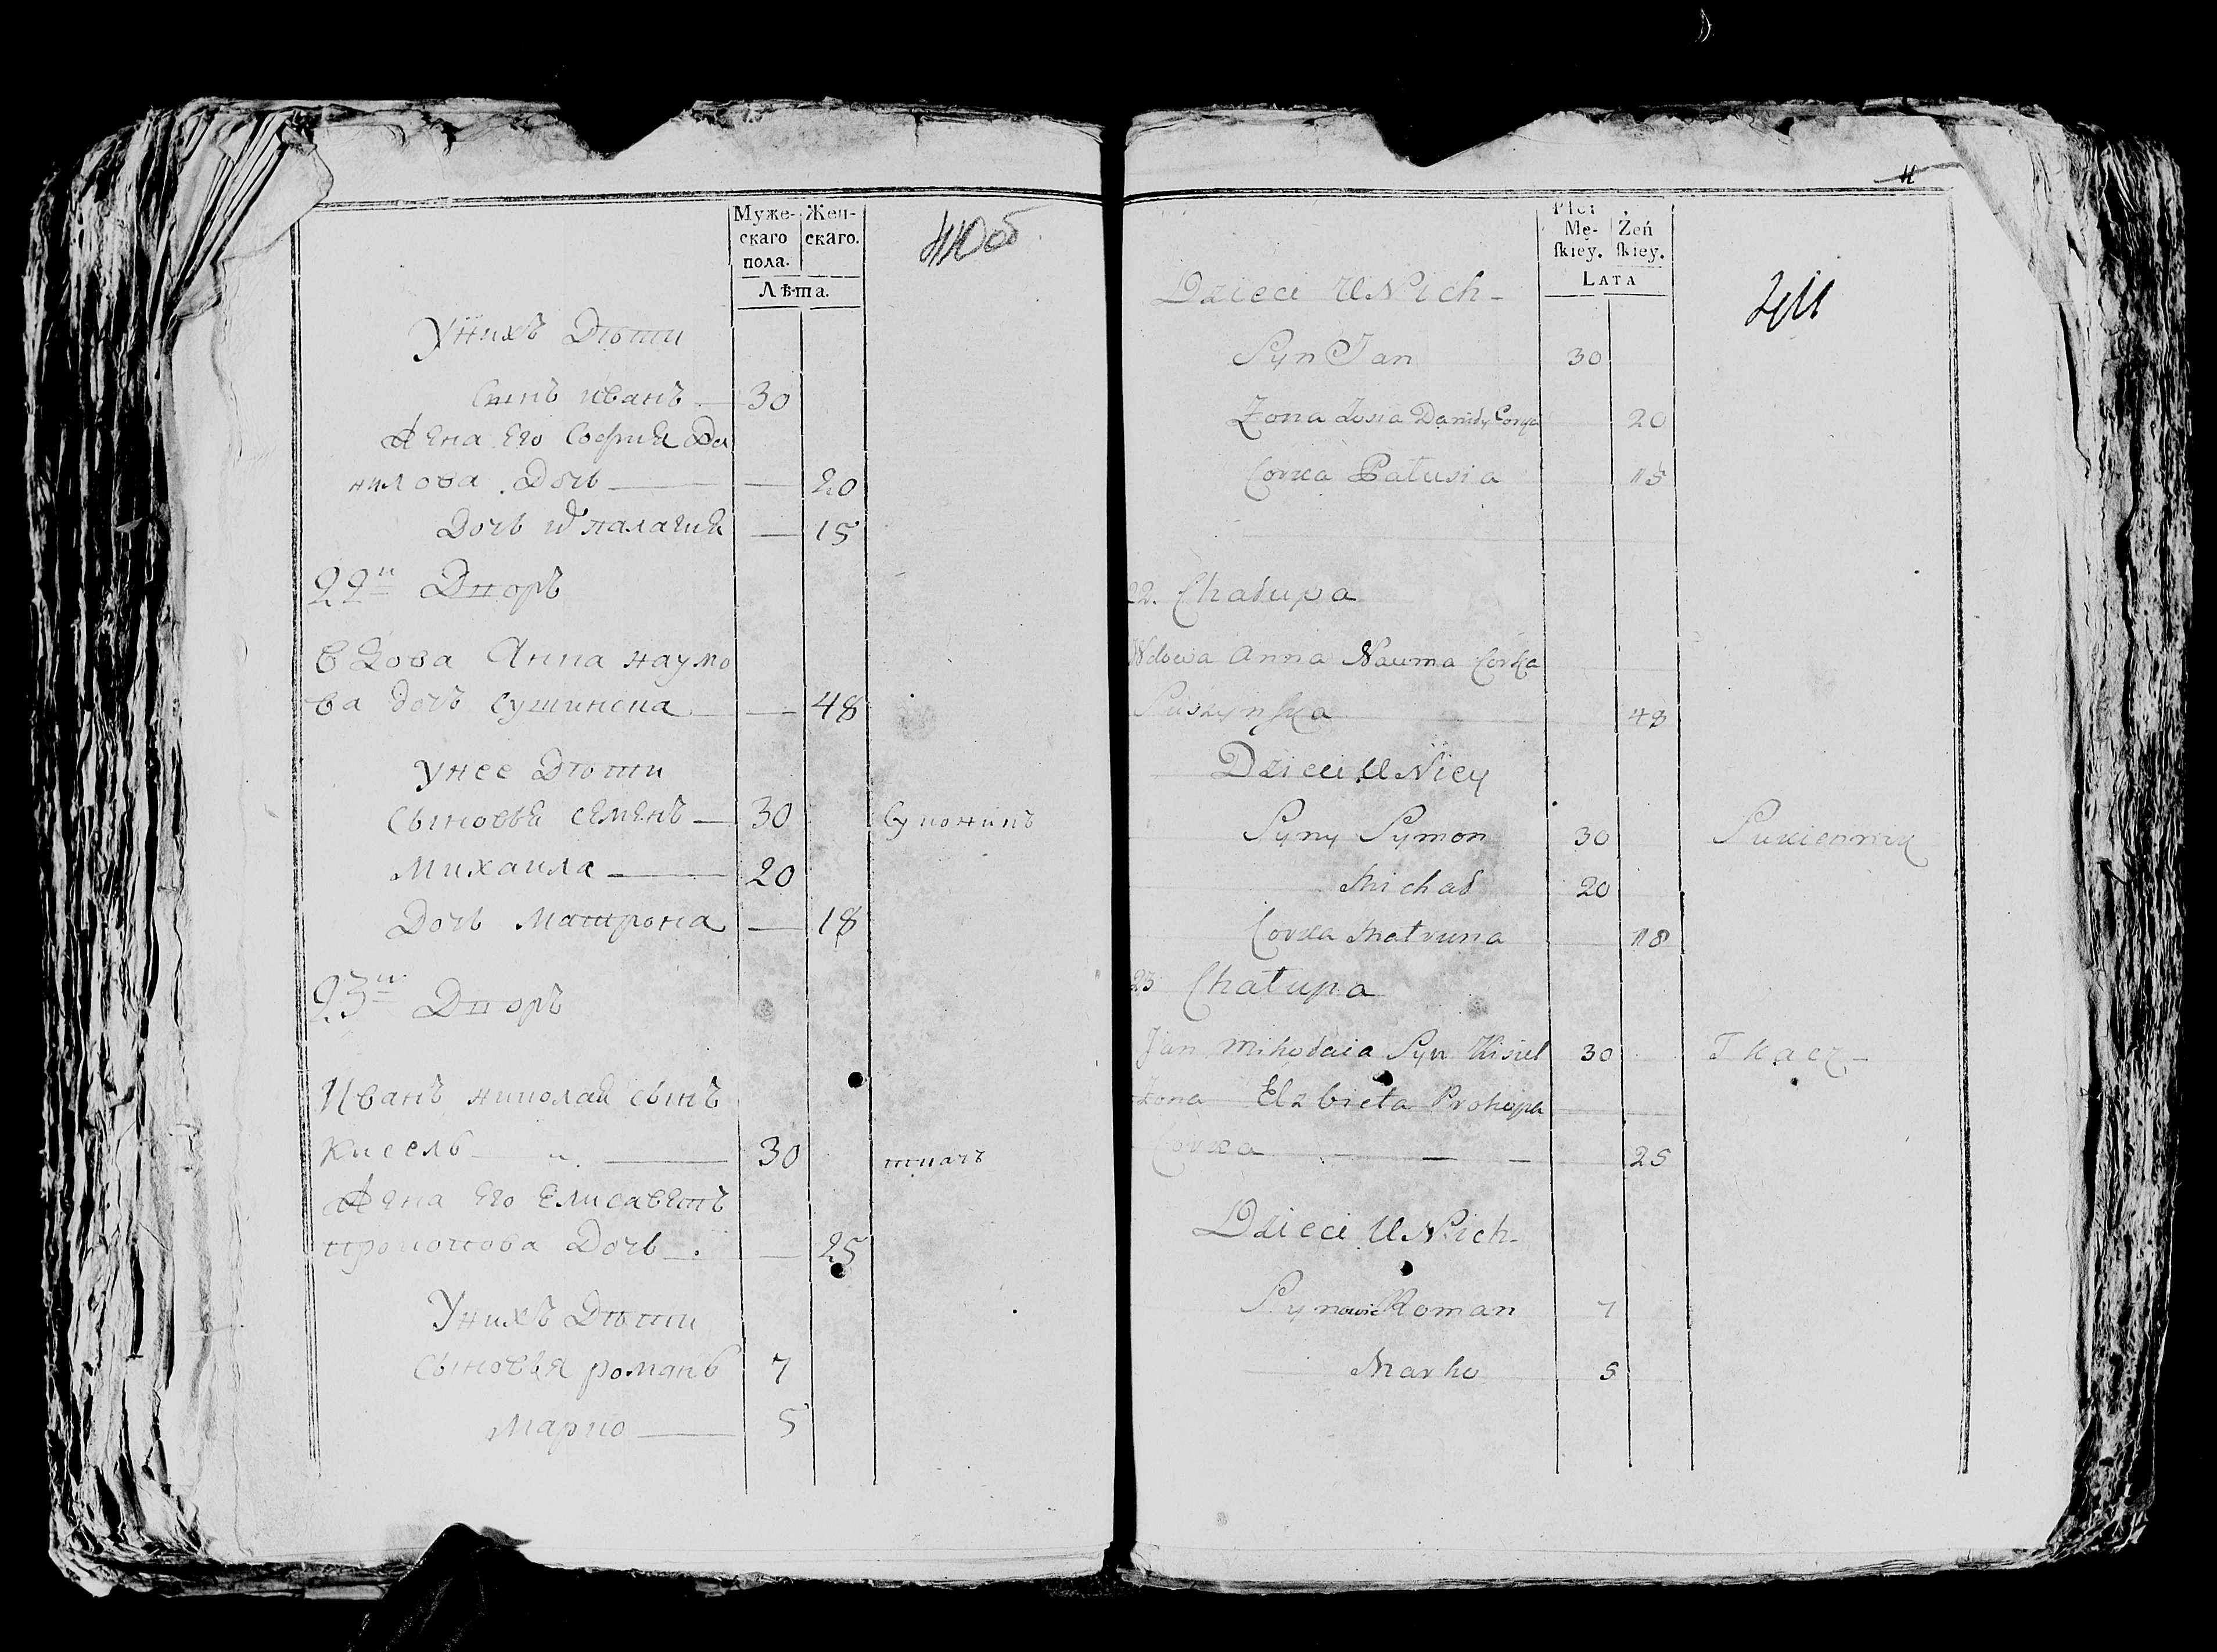 Муже- Жен-
скаго скаго.
пола.
Лѣта.
Унихъ Дѣти
Сынъ иванъ — 30
Жена Его София Да
нилова Дочь — 20
Дочь палагия — 15
22й Дворъ
Вдова Анна наумо
ва дочь Сушинска — 48
Унее Дѣти
Сыновья семенъ — 30
Михаила — 20
Дочь Матрона — 18
23й Дворъ
Иванъ николая сынъ
Кисель — 30 ткачъ
Жена Его Елисаветъ
прокопова Дочь — 25
Унихъ Дѣти
Сыновья романъ 7
Марко — 5
Płci
Mę- Żeń
ſkiey. ſkiey.
LATA
Dzieci U Nich -
Syn Jan 30
Zona Zosia Daniły Corka 20
Corka Patusia 15
22. Chałupa
Wdowa Anna Nauma Corka
Suszynska 48
Dzieci U Niey
Syny Symon 30 Sukiennik
Michał 20
Corka Matruna 18
23 Chałupa
Jan Mikołaia Syn Kisiel 30 Tkacz -
Zona Elzbieta Prokopa
Corka — 25
Dzieci U Nich -
Synowie Roman 7
Marko 5